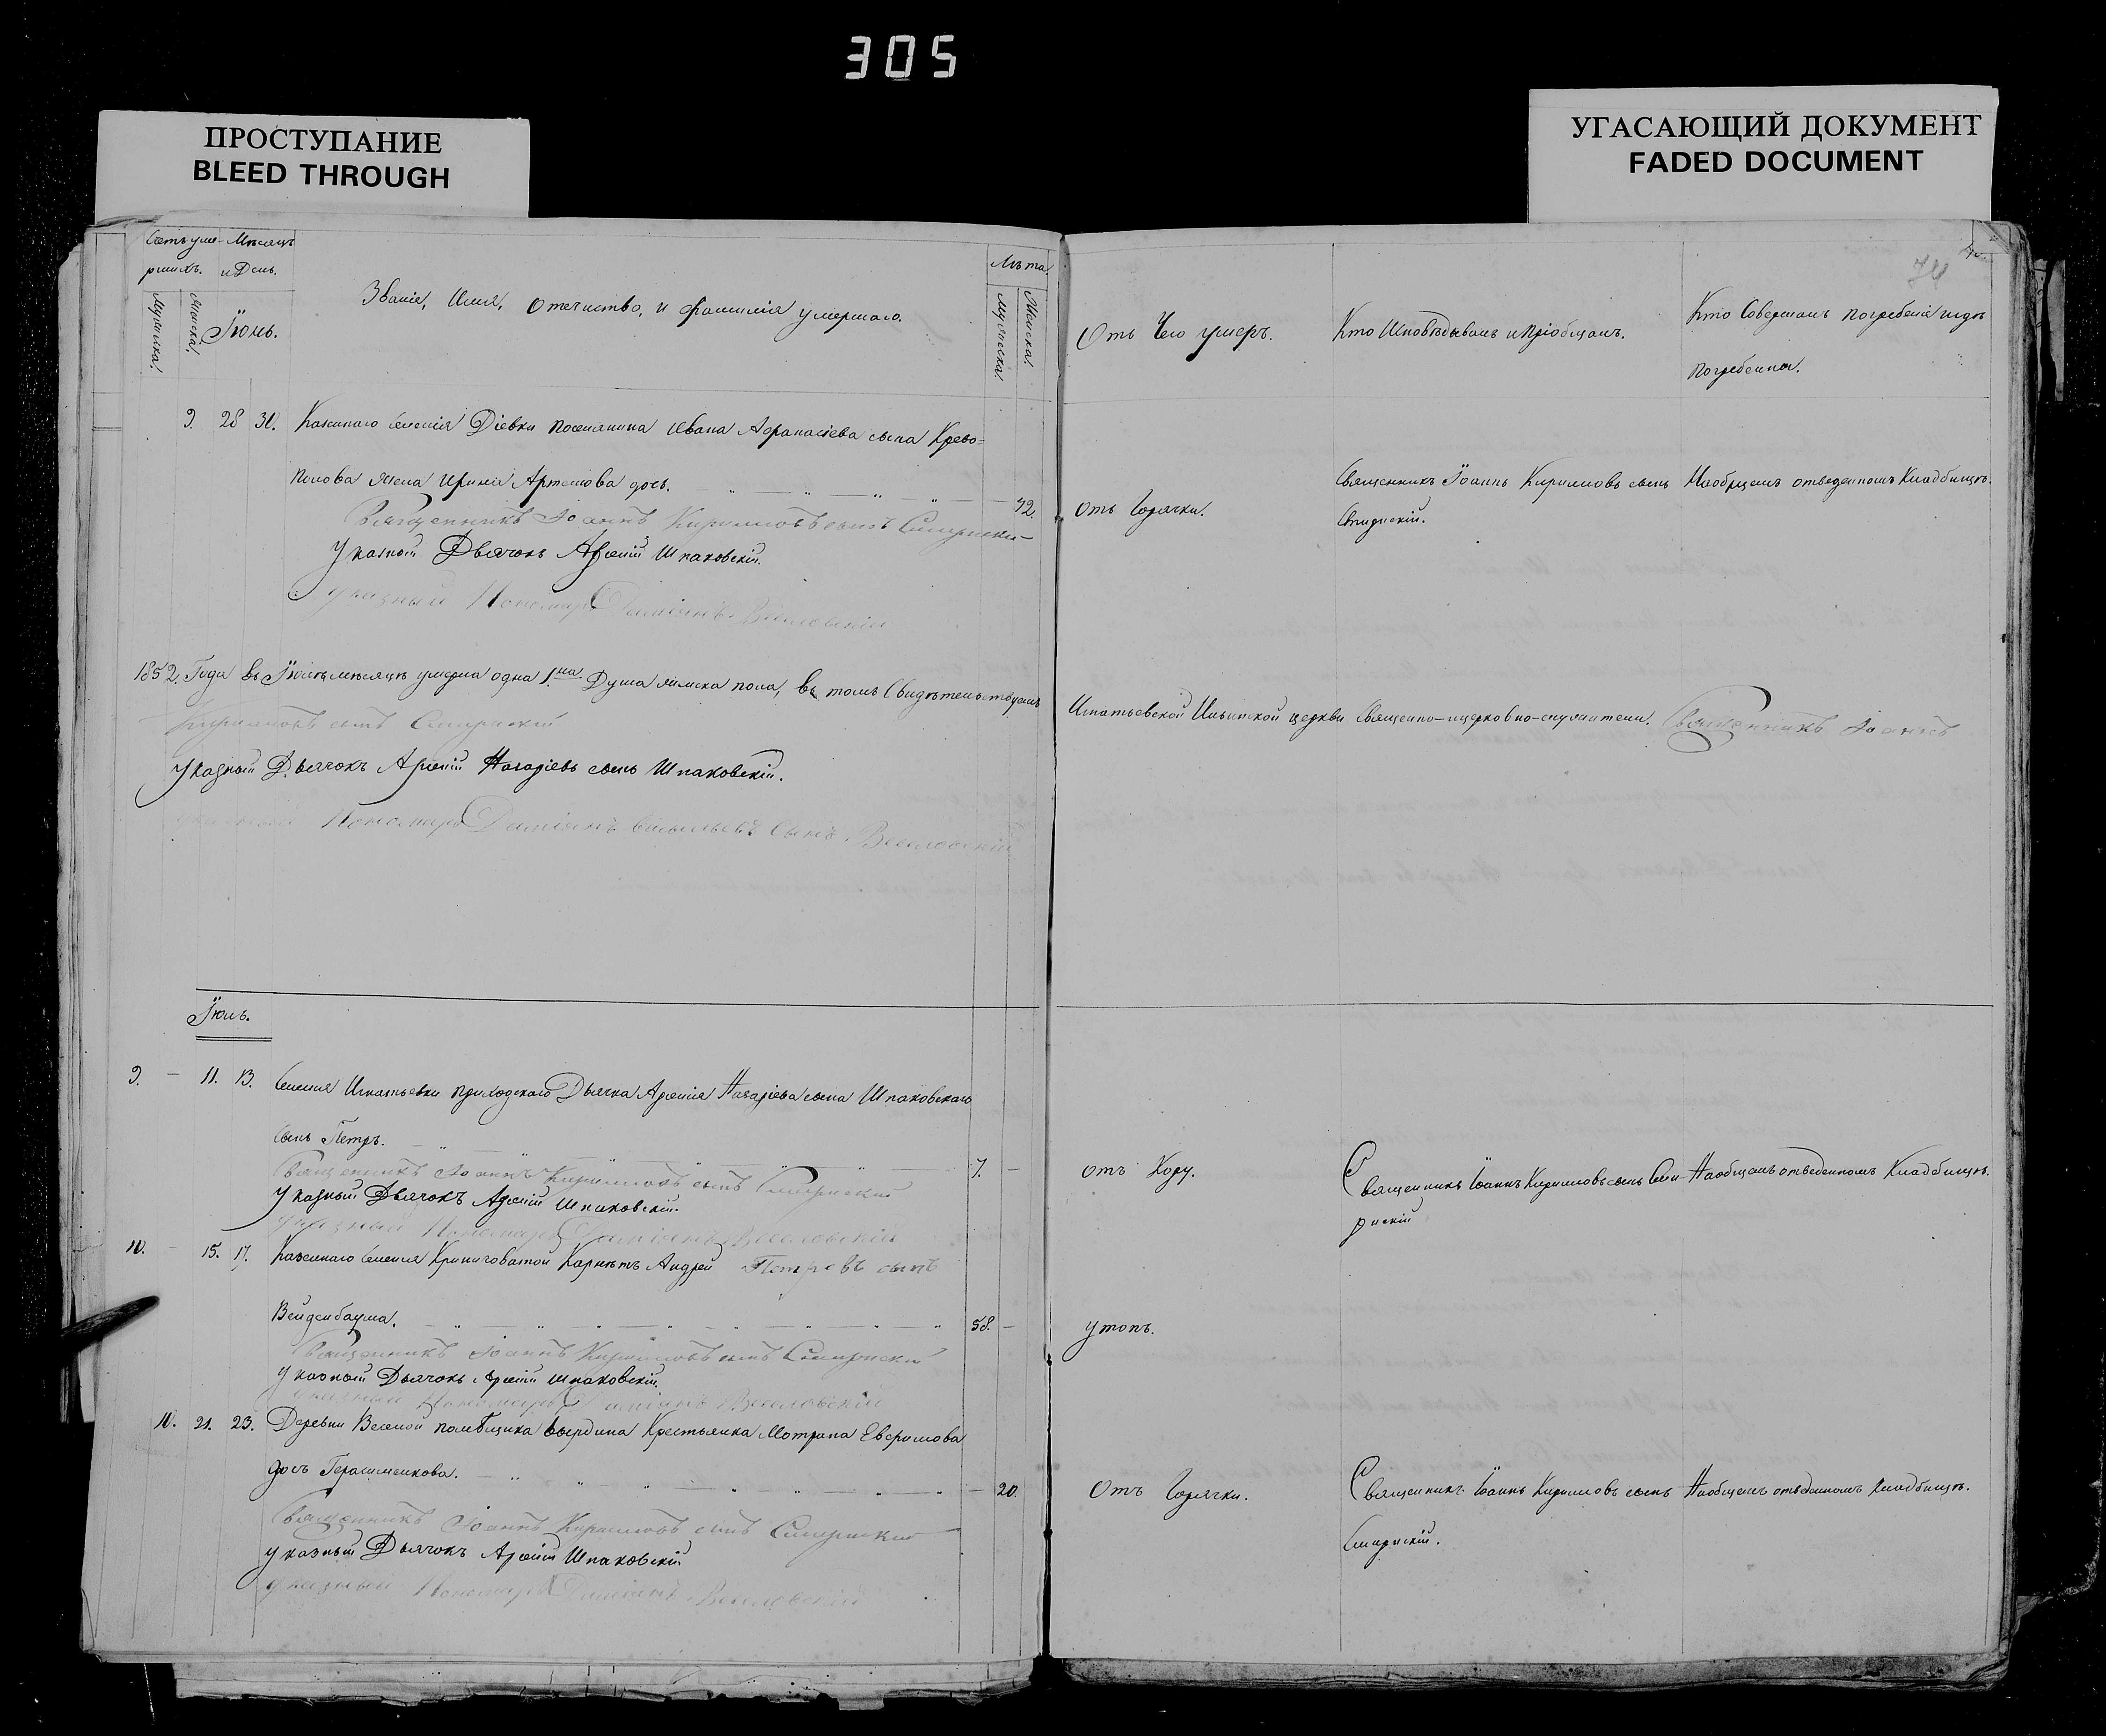 305
ПРОСТУПАНИЕ
BLEED THROUGH
УГАСАЮЩИЙ ДОКУМЕНТ
FADED DOCUMENT
74
Счетъ уме- Мѣсяцъ
ршихъ. и День.
Мужеска. Женска. Іюнь.
Званіе, Имя, Отечиство, и Фамилія умершаго.
Лѣта.
Мужеска. Женска.
Отъ Чего умеръ.
Кто Исповѣдывалъ и Пріобщалъ.
Кто Совершалъ погребеніе и гдѣ
погребенны.
9. 28 30. Казеннаго селенія Діевки поселянина Ивана Афанасіева сына Криво-
полова жена Ирина Артемова дочь. 72. отъ Горячки.
Священникъ Іоаннъ Кирилловъ сынъ
На общемъ отведенномъ Кладбищѣ.
Священникъ Іоаннъ Кирилловъ сынъ
Указный Дьячокъ Арсеній Шпаковскій.
Указный Пономарь Даміанъ Веселовскій
1852. Года въ Іюнѣ мѣсяцѣ умерла одна 1.на Душа женска пола, въ томъ Свидѣтельствуемъ
Игнатьевской Ильинской церкви Священно-ицерковно-служители. Священникъ Іоаннъ
Кирилловъ сынъ
Указный Дьячокъ Арсеній Назаріевъ сынъ Шпаковскій.
Указный Пономарь Даміанъ Васильевъ Сынъ Веселовскій
Іюль.
9. — 11. 13. Селенія Игнатьевки приходскаго Дьячка Арсенія Назаріева сына Шпаковскаго
сынъ Петръ. 7. — отъ Кору.
Священникъ Іоаннъ Кирилловъ сынъ
На общемъ отведенномъ Кладбищѣ.
Священникъ Іоаннъ Кирилловъ сынъ
Указный Дьячокъ Арсеній Шпаковскій.
Указный Пономарь Даміанъ Веселовскій
10. — 15. 17. Казеннаго селенія Криничоватой Карнетъ Андрей Петровъ сынъ
Вейденбаума. 58. — утопъ.
Священникъ Іоаннъ Кирилловъ сынъ
Указный Дьячокъ Арсеній Шпаковскій.
Указный Пономарь Даміанъ Веселовскій
10. 21. 23. Деревни Веселой помѣщика Крестьянка Мотрона Евфимова
дочь Герасименкова. — 20. Отъ Горячки.
Священникъ Іоаннъ Кирилловъ сынъ
На общемъ отведенномъ Кладбищѣ.
Священникъ Іоаннъ Кирилловъ сынъ
Указный Дьячокъ Арсеній Шпаковскій
Указный Пономарь Даміанъ Веселовскій